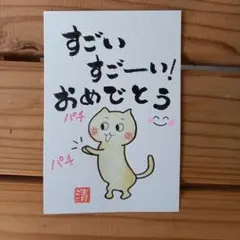 すごい
すごーい!
おめでとう
パチ
パチ
清